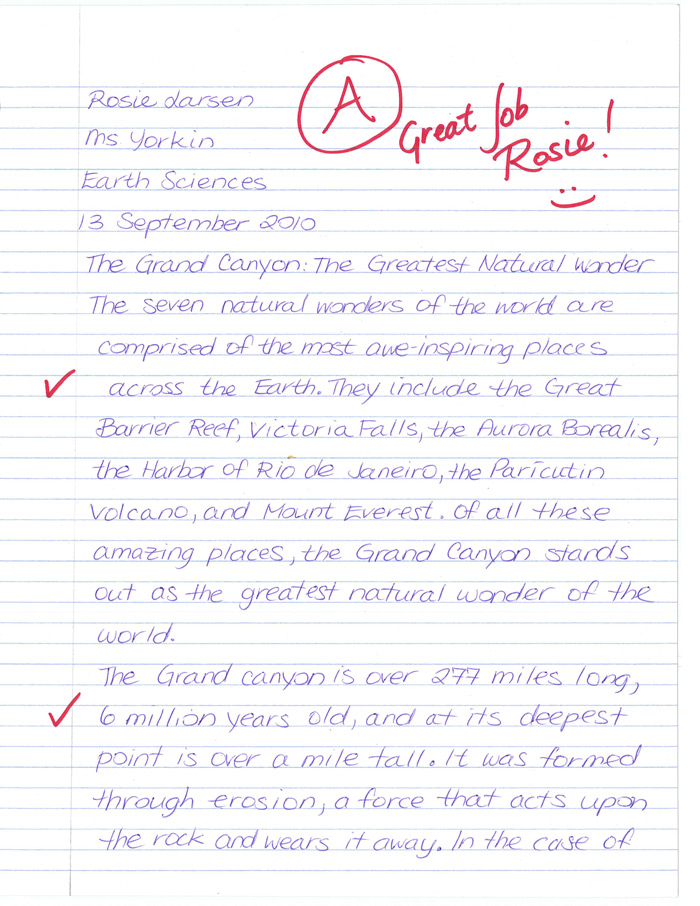 Rosie Larsen
Ms Yorkin
Earth Sciences
13 September 2010
A
Great Job
Rosie!
The Grand Canyon: The Greatest Natural Wonder
The seven natural wonders of the world are
comprised of the most awe-inspiring places
across the Earth. They include the Great
Barrier Reef, Victoria Falls, the Aurora Borealis,
the Harbor of Rio de Janeiro, the Paricutin
Volcano, and Mount Everest. Of all these
amazing places, the Grand Canyon stands
out as the greatest natural wonder of the
world.
The Grand canyon is over 277 miles long,
6 million years old, and at its deepest
point is over a mile tall. It was formed
through erosion, a force that acts upon
the rock and wears it away. In the case of